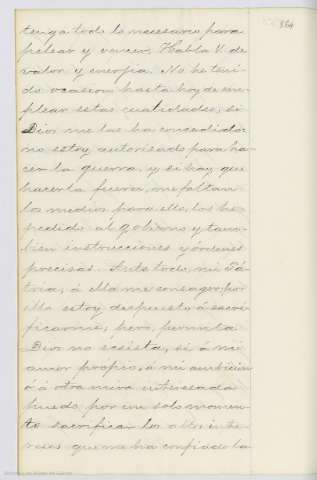 384
tenga todo lo necesario para
pelear y vencer. Habla V. de
valor y energia. No he teni-
do ocasion hasta hoy de em-
plear estas cualidades, si
Dios me las ha concedido:
no estoy autorizado para ha-
cer la guerra, y si hay que
hacerla fuera, me faltan
los medios para ello, los he
pedido al gobierno y tam-
bien instrucciones y órdenes
precisas. Ante todo, mi Pá-
tria, á ella me consagro, por
ella estoy dispuesto á sacri-
ficarme; pero, permita
Dios no ecsista, si á mi
amor própio, á mi ambicion
ó á otra mira interesada
puedo por un solo momen-
to sacrificar los altos inte-
reses que me ha confiado la